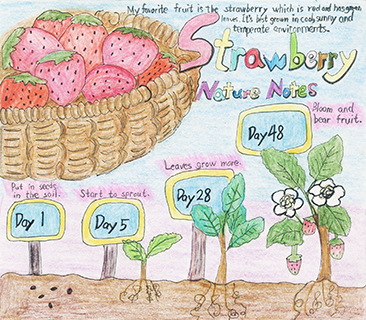 My favorite fruit is the strawberry which is red and has green
leaves. It's best grown in cool, sunny and
temperate environments.
Strawberry
Nature Notes
Bloom and
bear fruit.
Day 48
Leaves grow more.
Day 28
Start to sprout.
Day 5
Put in seeds
in the soil.
Day 1